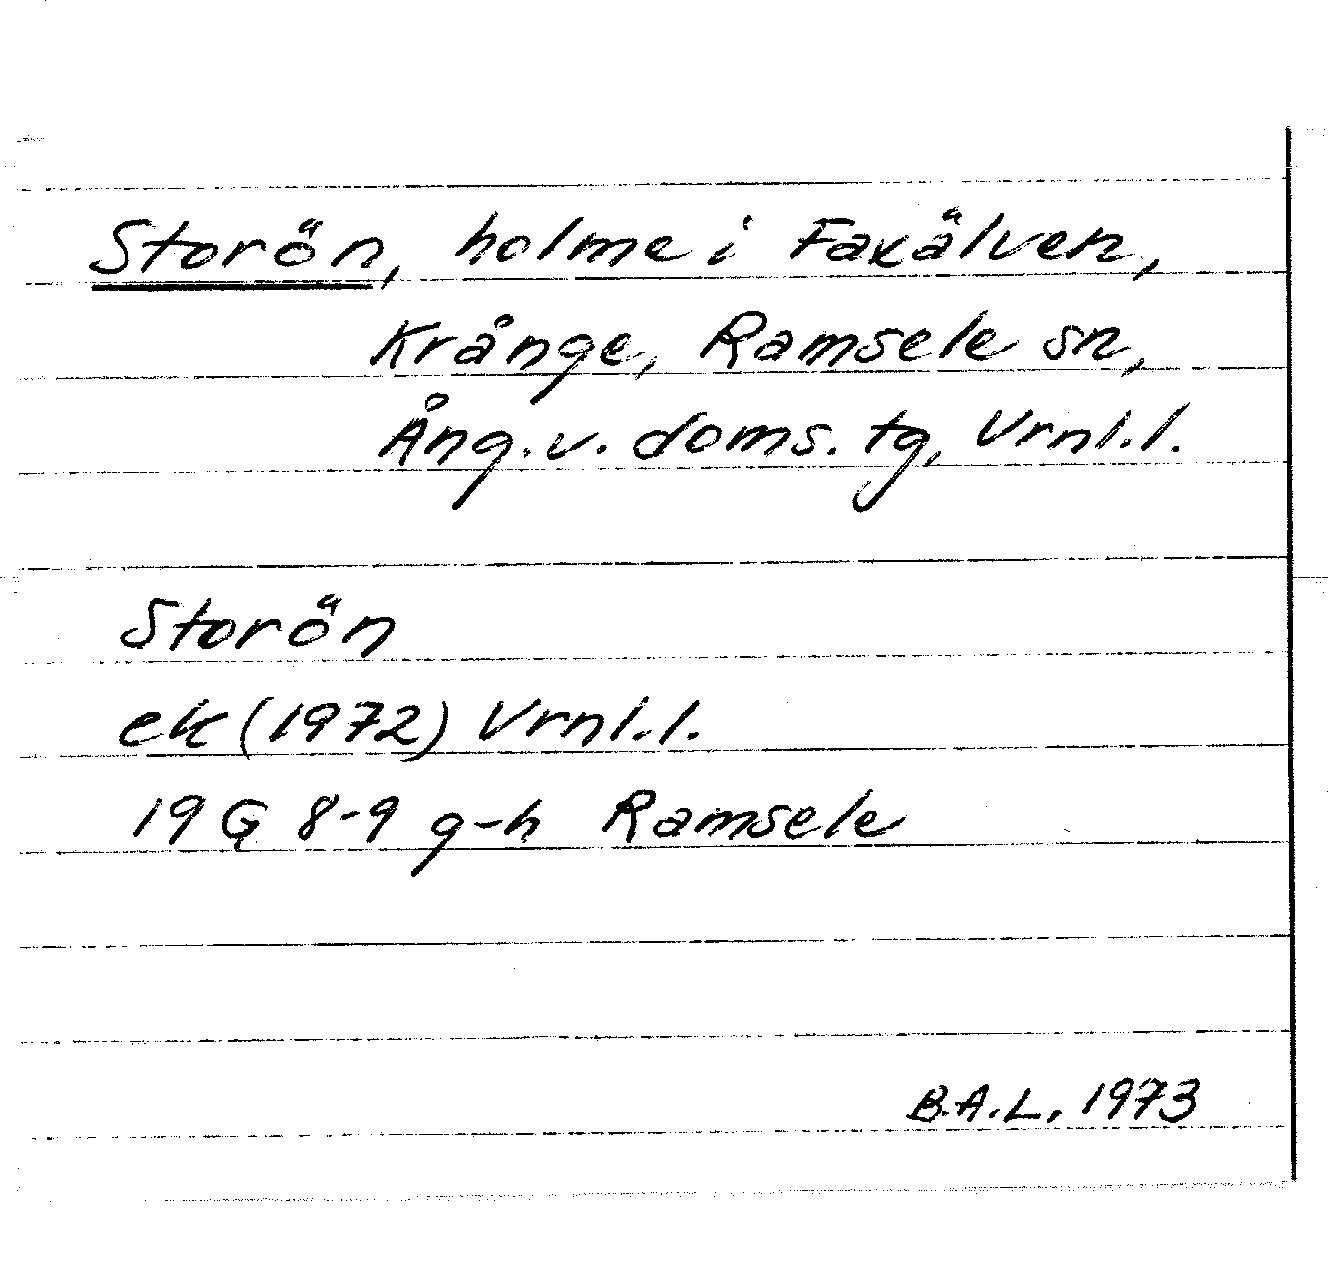 Storön, holme i Faxälven,
Krånge, Ramsele sn,
Ång. v. doms. tg, Vrnl. l.
Storön
ek (1972) Vrnl. l.
19 G 8-9 g-h Ramsele
B.A.L. 1973